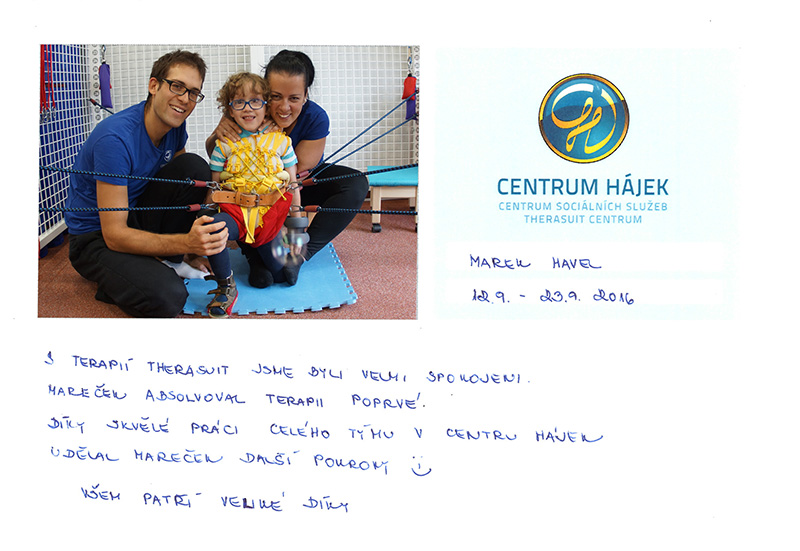 CENTRUM HÁJEK
CENTRUM SOCIÁLNÍCH SLUŽEB
THERASUIT CENTRUM
MAREK HAVEL
12.9. - 23.9. 2016
S TERAPIÍ THERASUIT JSME BYLI VELMI SPOKOJENI.
MAREČEK ABSOLVOVAL TERAPII POPRVÉ.
DÍKY SKVĚLÉ PRÁCI CELÉHO TÝMU V CENTRU HÁJEK
UDĚLAL MAREČEK DALŠÍ POKROKY
VŠEM PATŘÍ VELIKÉ DÍKY